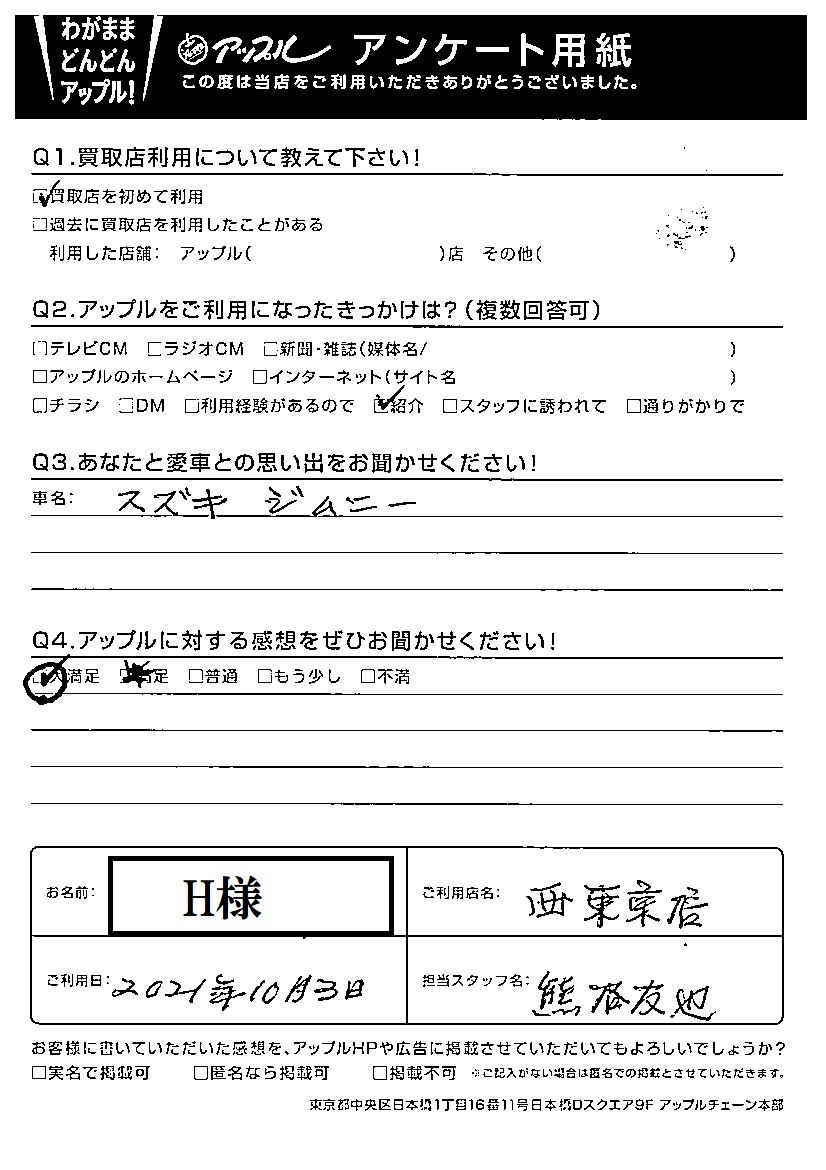 わがまま
どんどん
アップル!
アップル アンケート用紙
この度は当店をご利用いただきありがとうございました。
Q1.買取店利用について教えて下さい!
☑買取店を初めて利用
□過去に買取店を利用したことがある
利用した店舗: アップル( )店 その他( )
Q2.アップルをご利用になったきっかけは?(複数回答可)
□テレビCM □ラジオCM □新聞・雑誌(媒体名/ )
□アップルのホームページ □インターネット(サイト名 )
□チラシ □DM □利用経験があるので ☑紹介 □スタッフに誘われて □通りがかりで
Q3.あなたと愛車との思い出をお聞かせください!
車名: スズキ ジムニー
Q4.アップルに対する感想をぜひお聞かせください!
☑大満足 □満足 □普通 □もう少し □不満
お名前: H様
ご利用店名: 西東京店
ご利用日: 2021年10月3日
担当スタッフ名: 熊谷友也
お客様に書いていただいた感想を、アップルHPや広告に掲載させていただいてもよろしいでしょうか?
□実名で掲載可 □匿名なら掲載可 □掲載不可 ※ご記入がない場合は匿名での掲載とさせていただきます。
東京都中央区日本橋1丁目16番11号日本橋Dスクエア9F アップルチェーン本部